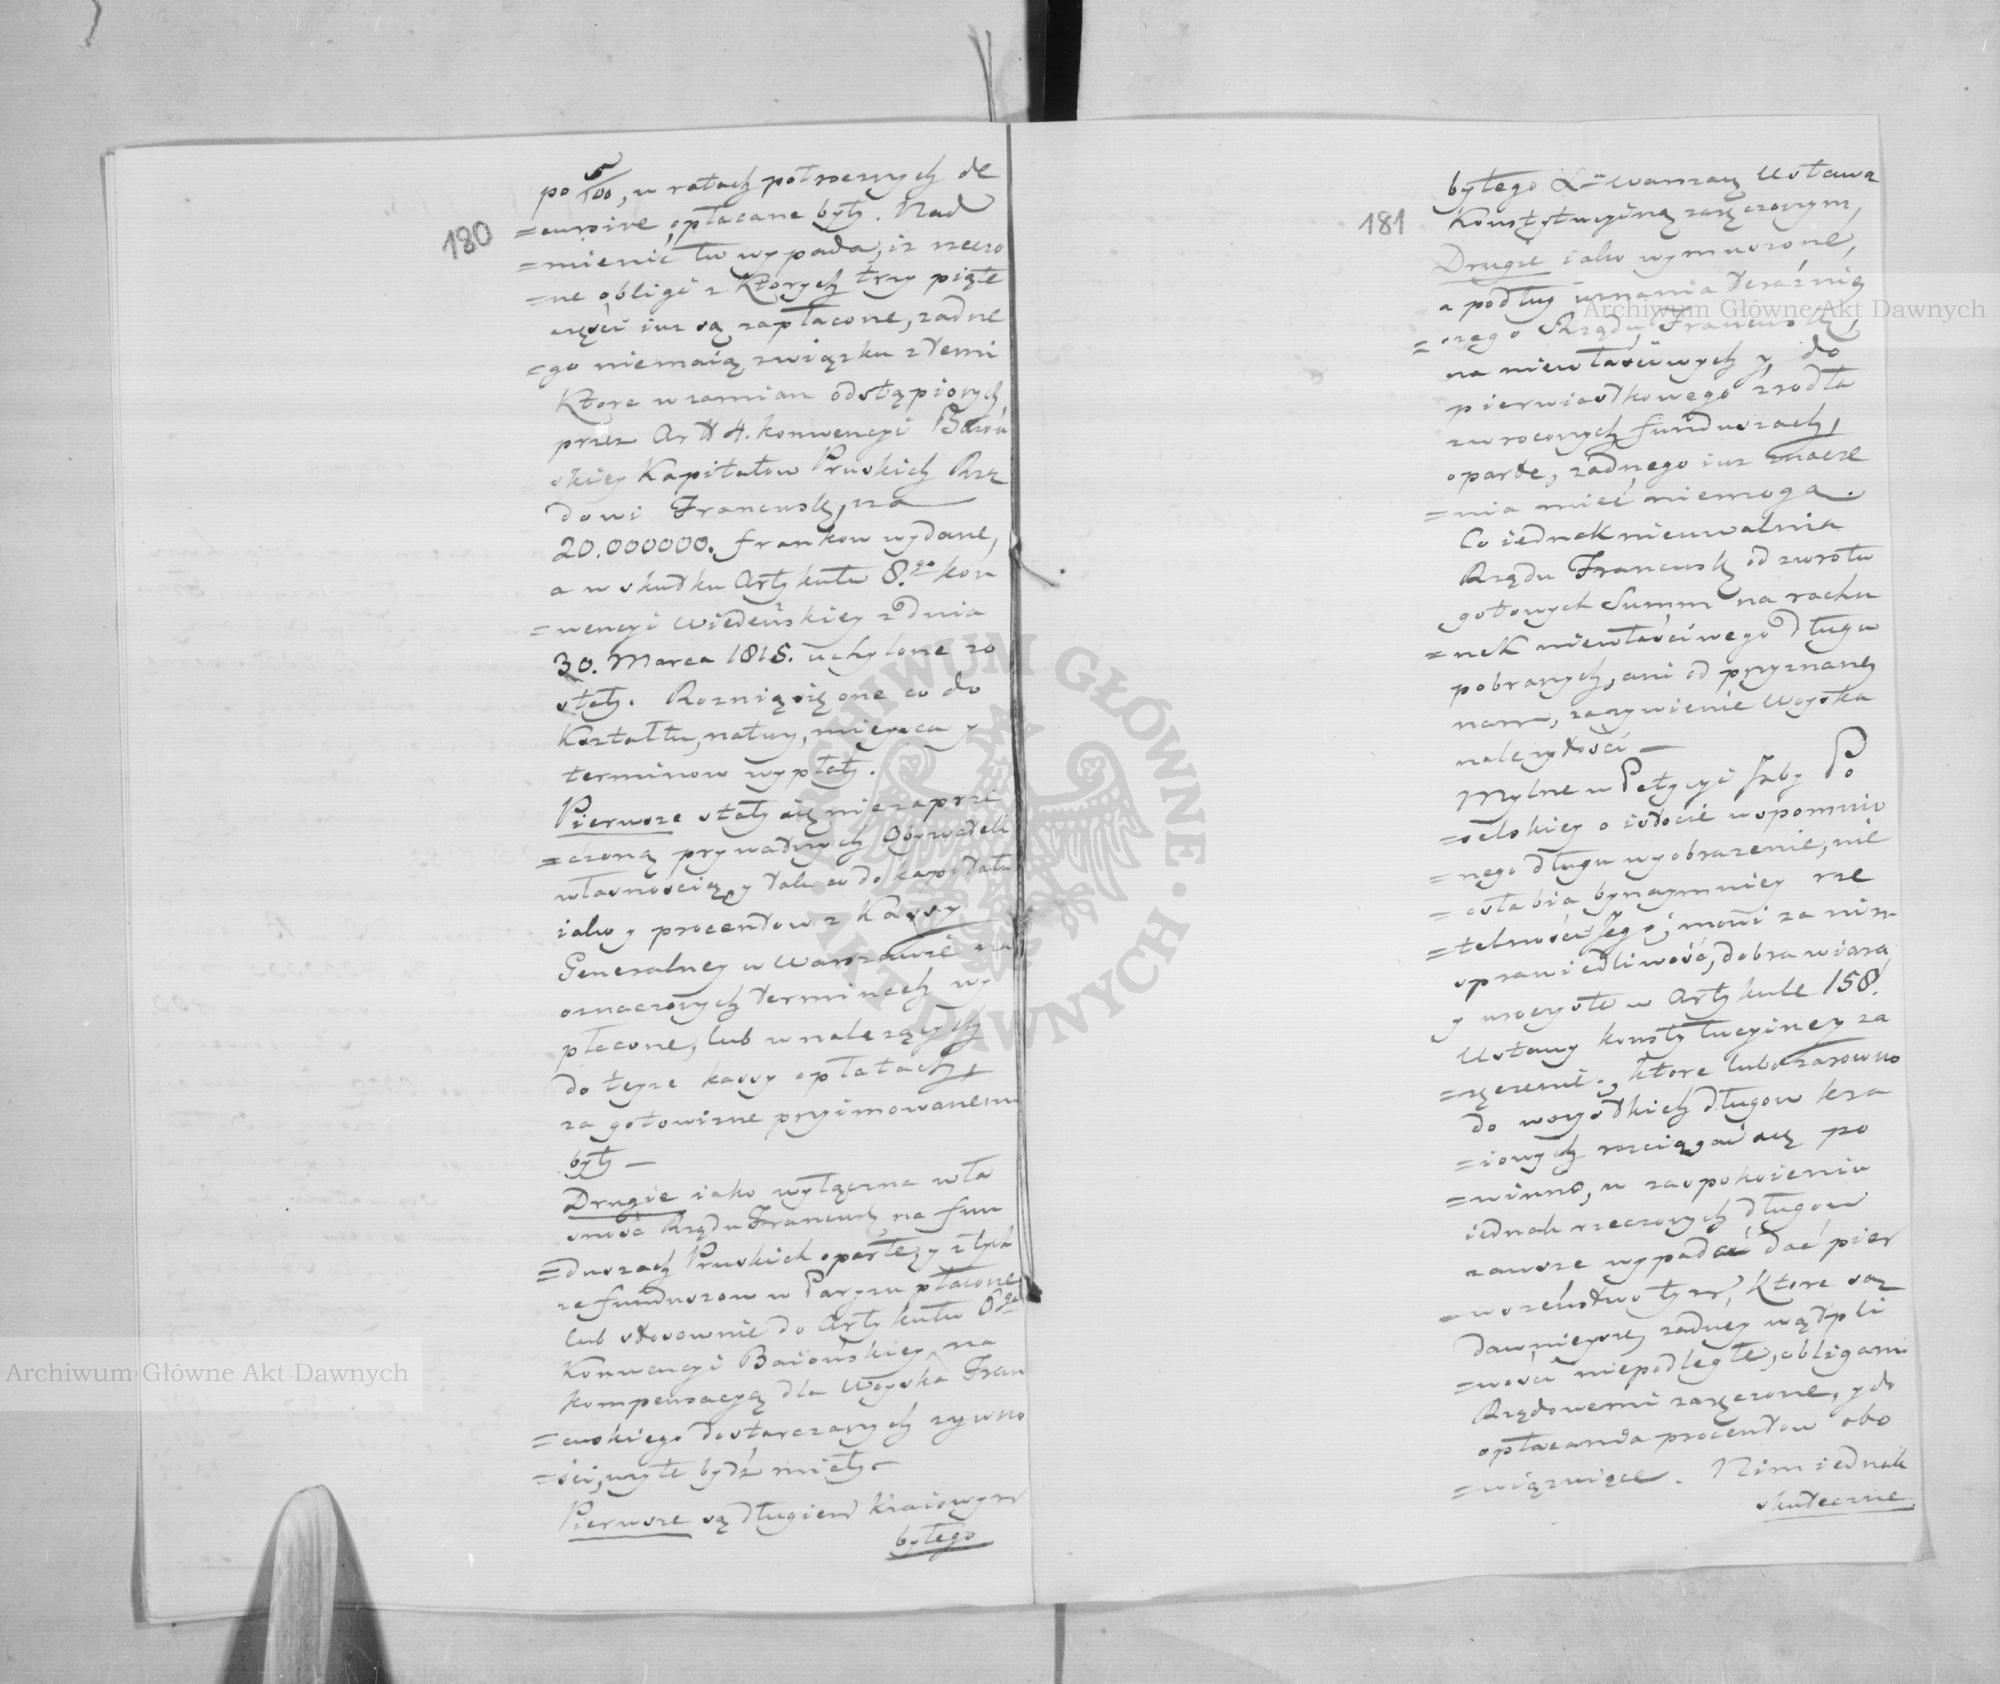 180
po 5/100, w ratach połrocznych de
=cursive opłacane były. Nad
=mienić tu wypada, iz rzeczo
=ne obligi z Ktorych trzy piąte
częsci iuz są zapłacone, zadne
=go niemaią związku z temi
Ktore w zamian odstąpionych
przez Artt 4. konwencyi Baioń
skiey Kapitałow Pruskich Rzą
dowi Francusk. na
20.000000. frankow wydane,
a w skutku Artykułu 8.go kon
=wencyi Wiedeńskiey z dnia
30. Marca 1815. uchylone zo
stały. Roznią się one co do
Kształtu, natury, mieysca y
terminow wypłaty.
Pierwsze stały się niezaprze
=czoną prywatnych Obywateli
własnością, y tak co do kapitału
iako y procentow z Kassy
Generalney w Warszawie na
oznaczonych terminach wy
płacone, lub w nalezących
do teyze kassy opłatach,
za gotowizne przyimowanemi
były —
Drugie iako wyłączna wła
sność Rządu Francusk. na fun
=duszach Pruskich oparte, y z tych
ze funduszow w Paryzu płacone
lub stosownie do Artykułu 6go
Konwencyi Baiońskiey, na
kompensacyą dla Woyska Fran
=cuskiego dostarczanych zywno
=sci, uzyte bydź miały. —
Pierwsze są długiem kraiowym
byłego
181
byłego X.wa Warszaw. Ustawą
Konstytucyiną zaręczonym,
Drugie iako wymuszone,
a podług uznania teraźniey
=szego Rządu Francusk.
na niewłasciwych y do
pierwiastkowego zrodła
zwroconych funduszach,
oparte, zadnego iuz znacze
=nia mieć niemogą.
Co iednak nieuwalnia
Rządu Francusk. od zwrotu
gotowych Summ na rachu
=nek niewłaściwego długu
pobranych, ani od przyznaney
nam, za zywienie Woyska
nalezytości —
Mylne w Petycyi Izby Po
=selskiey o istocie wspomnio
=nego długu wyobrazenie, nie
=osłabia bynaymniey rze
=telności Jego; mowi za nim
sprawiedliwość, dobra wiara,
y uroczyste w Artykule 158.
Ustawy konstytucyiney za
=ręczenie, ktore lubo zarowno
do wszystkich długow kra
=iowych rozciągać się po
=winno, w zaspokoieniu
iednak rzeczonych długow
zawsze wypada dać pier
=wszeństwo tym, ktore są
dawnieysze, zadney wątpli
=wości niepodległe, obligami
Rządowemi zaręczone, y do
opłacania procentow obo
=wiązuiące. Nim iednak
skuteczne
Archiwum Główne Akt Dawnych
Archiwum Główne Akt Dawnych
ARCHIWUM GŁÓWNE · AKT DAWNYCH ·